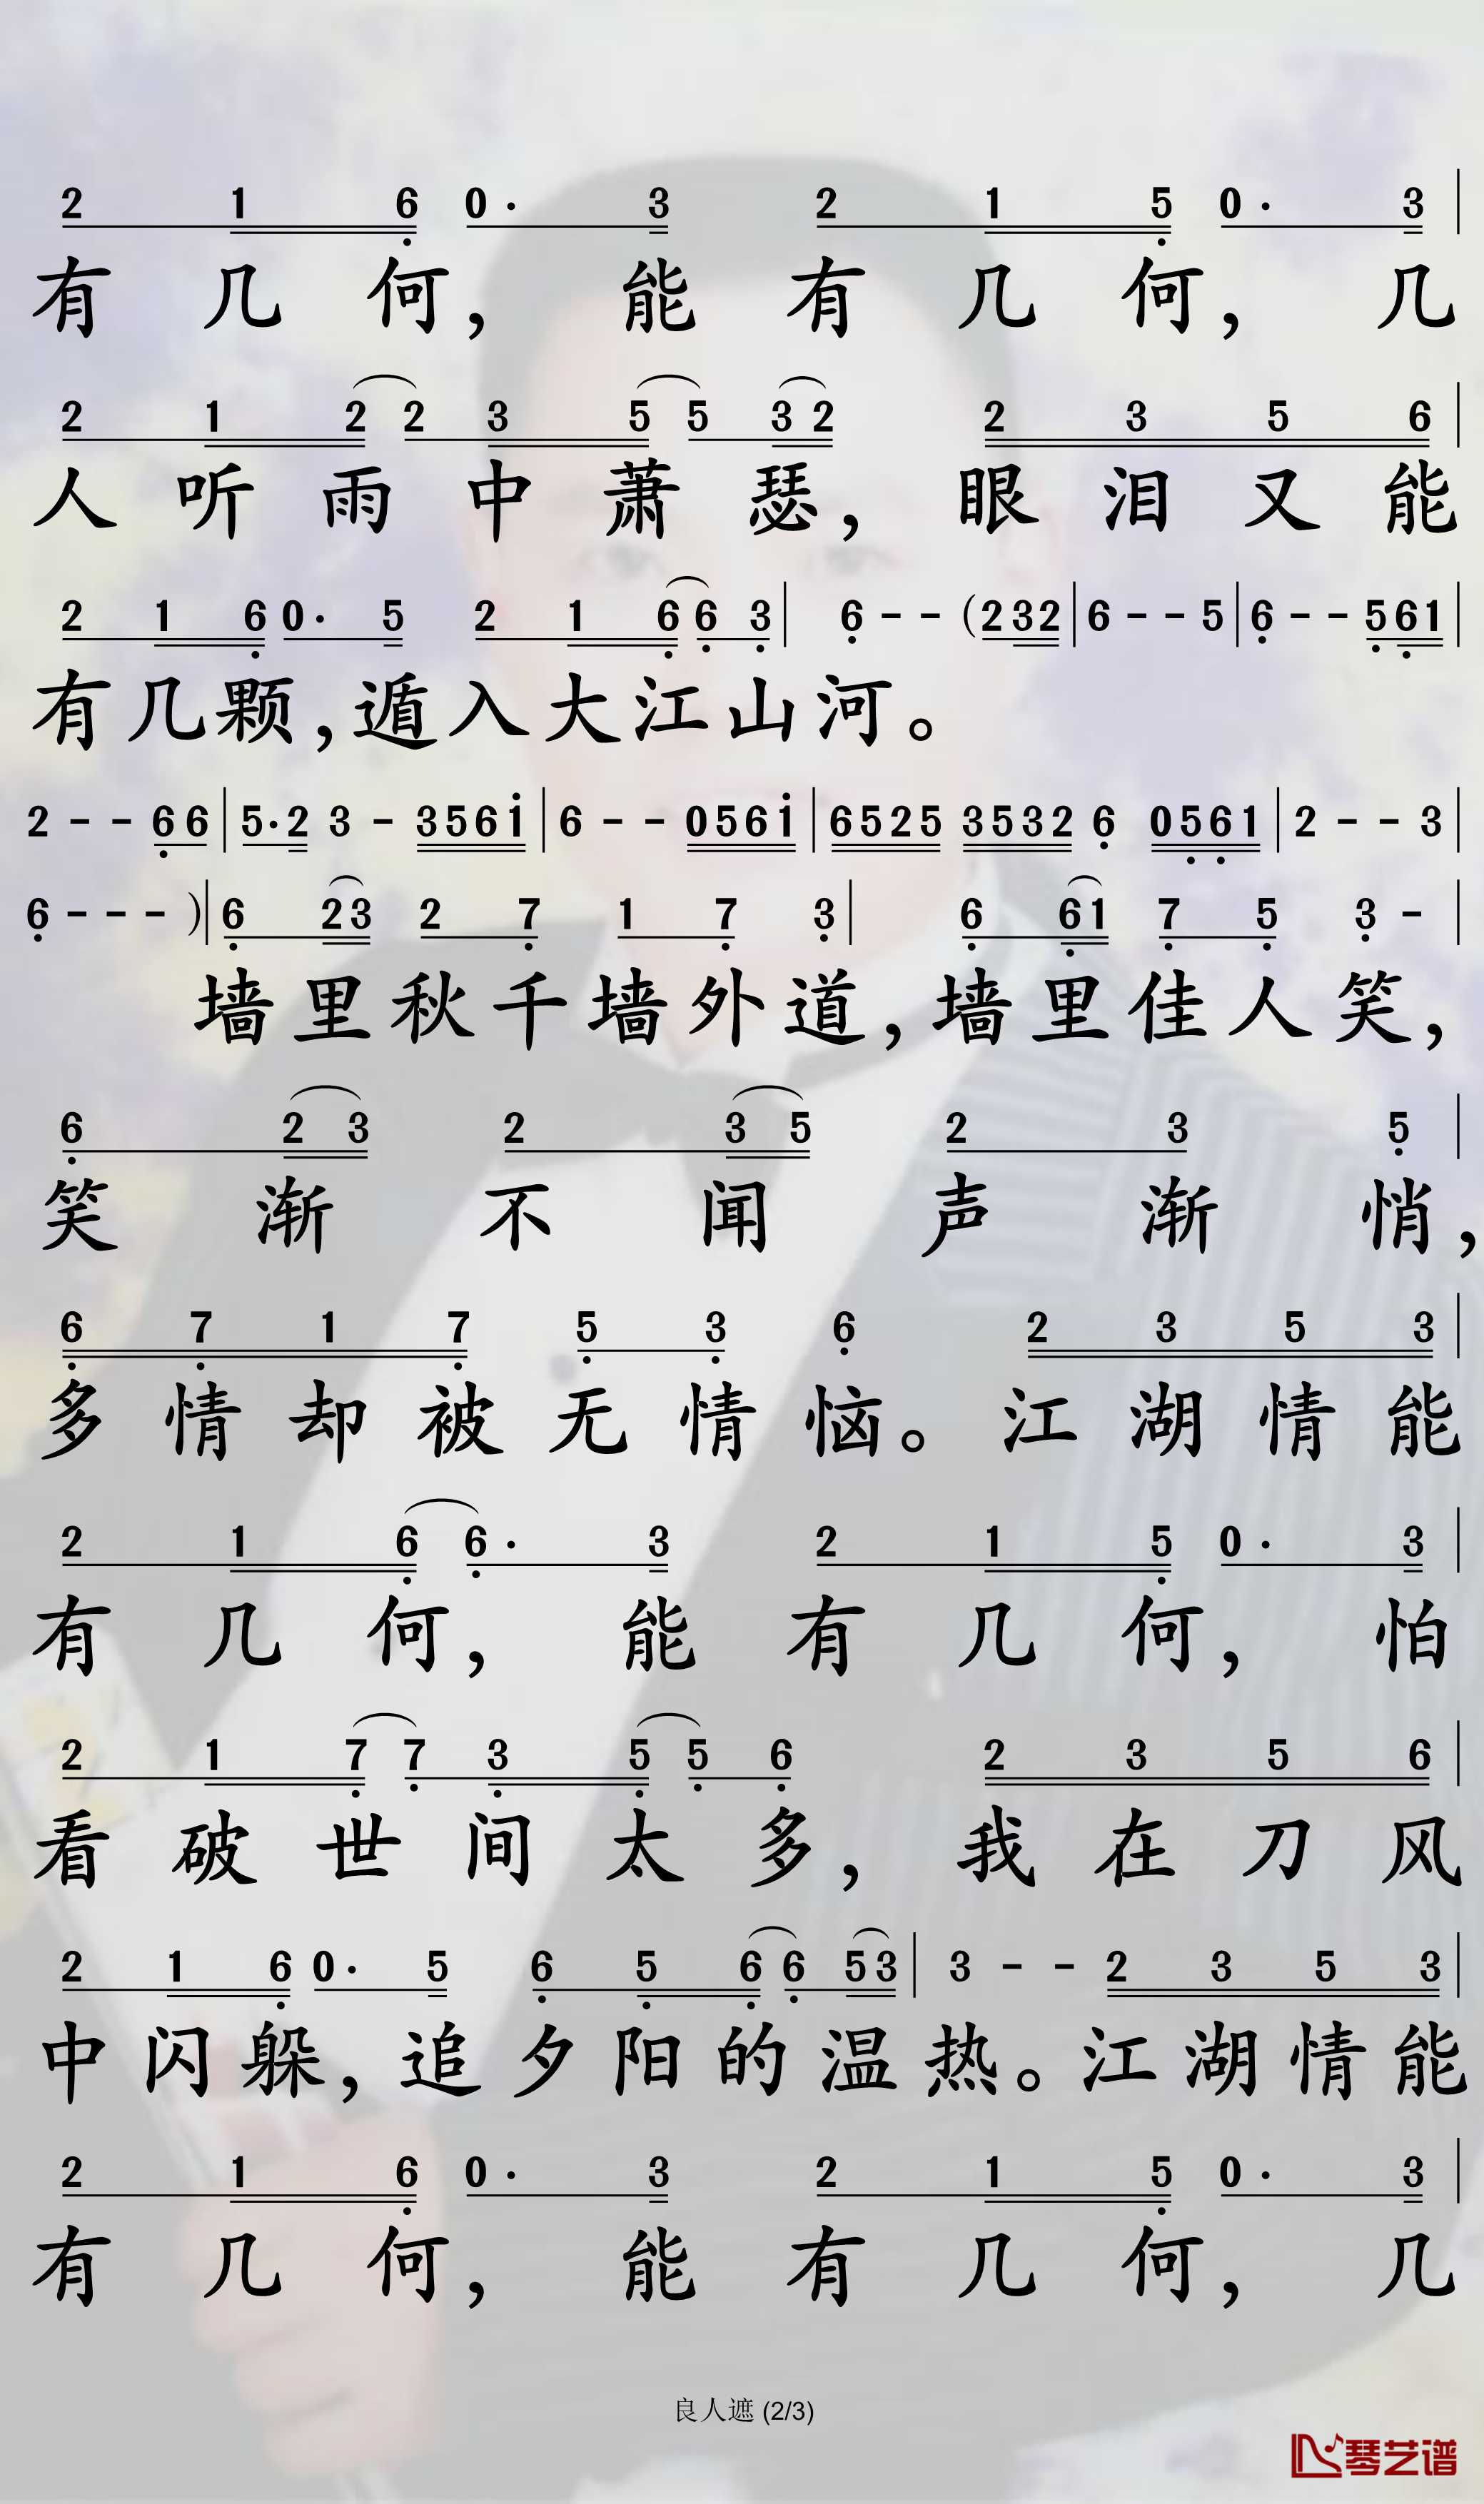 2 1 6 0· 3 2 1 5 0· 3 |
有几何，能有几何，几
2 1 2 2 3 5 5 3 2 2 3 5 6 |
人听雨中萧瑟，眼泪又能
2 1 6 0· 5 2 1 6 6 3 | 6 - - (2 3 2 | 6 - - 5 | 6 - - 5 6 1 |
有几颗，遁入大江山河。
2 - - 6 6 | 5· 2 3 - 3 5 6 1 | 6 - - 0 5 6 1 | 6 5 2 5 3 5 3 2 6 0 5 6 1 | 2 - - 3 |
6 - - - ) | 6 2 3 2 7 1 7 3 | 6 6 1 7 5 3 - |
墙里秋千墙外道，墙里佳人笑，
6 2 3 2 3 5 2 3 5 |
笑渐不闻声渐悄，
6 7 1 7 5 3 6 2 3 5 3 |
多情却被无情恼。江湖情能
2 1 6 6· 3 2 1 5 0· 3 |
有几何，能有几何，怕
2 1 7 7 3 5 5 6 2 3 5 6 |
看破世间太多，我在刀风
2 1 6 0· 5 6 5 6 6 5 3 | 3 - - 2 3 5 3 |
中闪躲，追夕阳的温热。江湖情能
2 1 6 0· 3 2 1 5 0· 3 |
有几何，能有几何，几
良人遮 (2/3)
琴艺谱